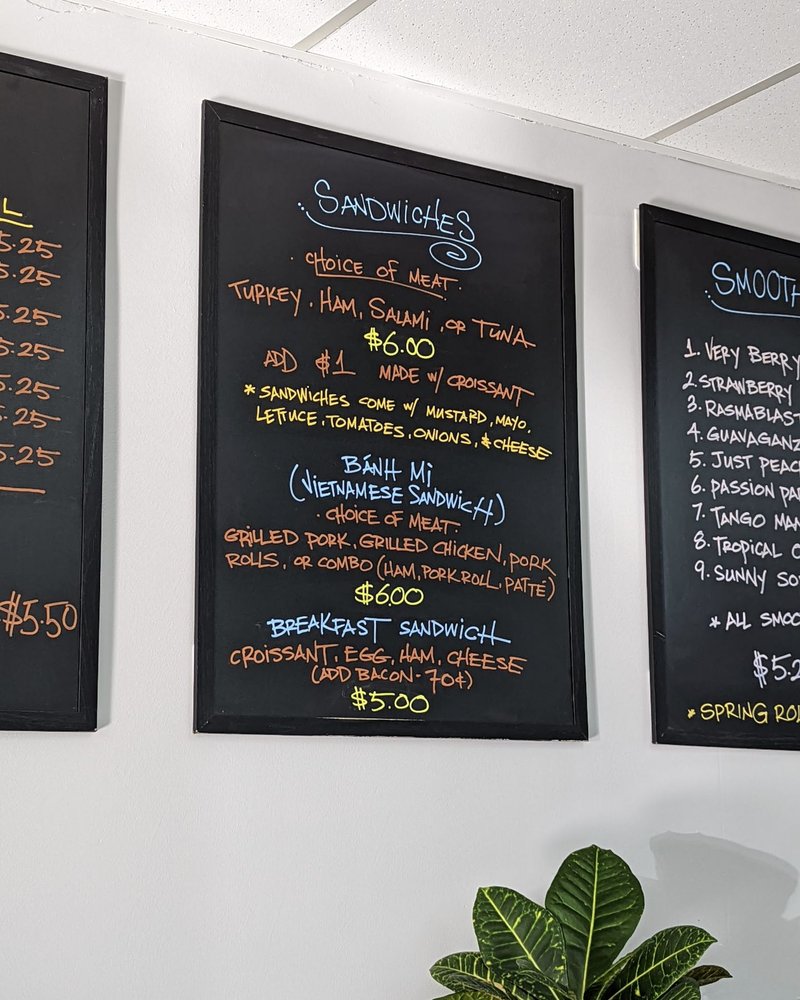 5.25
5.25
5.25
5.25
5.25
5.25
5.25
$5.50
SANDWICHES
· CHOICE OF MEAT ·
TURKEY, HAM, SALAMI, OR TUNA
$6.00
ADD $1 MADE W/ CROISSANT
* SANDWICHES COME W/ MUSTARD, MAYO,
LETTUCE, TOMATOES, ONIONS, & CHEESE
BÁNH MI
(VIETNAMESE SANDWICH)
· CHOICE OF MEAT ·
GRILLED PORK, GRILLED CHICKEN, PORK
ROLLS, OR COMBO (HAM, PORK ROLL, PATTÉ)
$6.00
BREAKFAST SANDWICH
CROISSANT, EGG, HAM, CHEESE
(ADD BACON - 70¢)
$5.00
SMOOTH
1. VERY BERRY
2. STRAWBERRY
3. RASMABLAST
4. GUAVAGANZ
5. JUST PEAC
6. PASSION PA
7. TANGO MAN
8. TROPICAL
9. SUNNY SO
* ALL SMOO
$5.2
* SPRING ROL